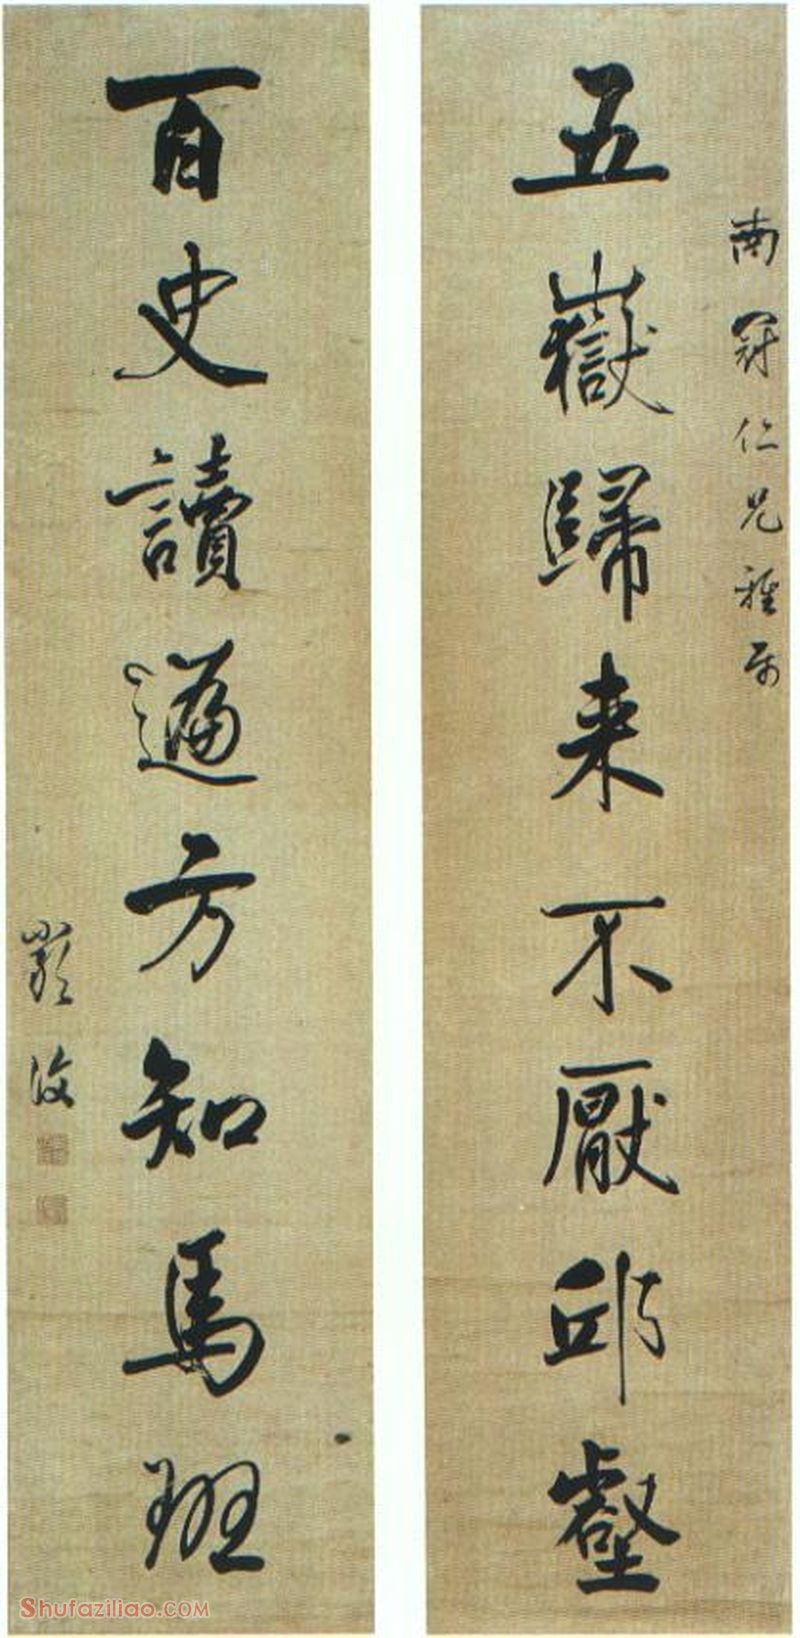 南冠仁兄雅属
五嶽歸来不厭邱壑
百史讀遍方知馬班
Shufaziliao.COM